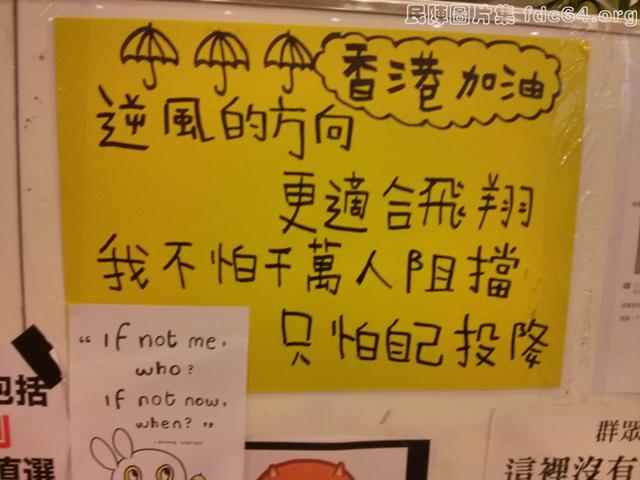 民陣圖片集 fdc64.org
香港加油
逆風的方向
更適合飛翔
我不怕千萬人阻擋
只怕自己投降
"If not me,
who?
If not now,
when?"
- EMMA WATSON
包括
直選
群眾
這裡沒有